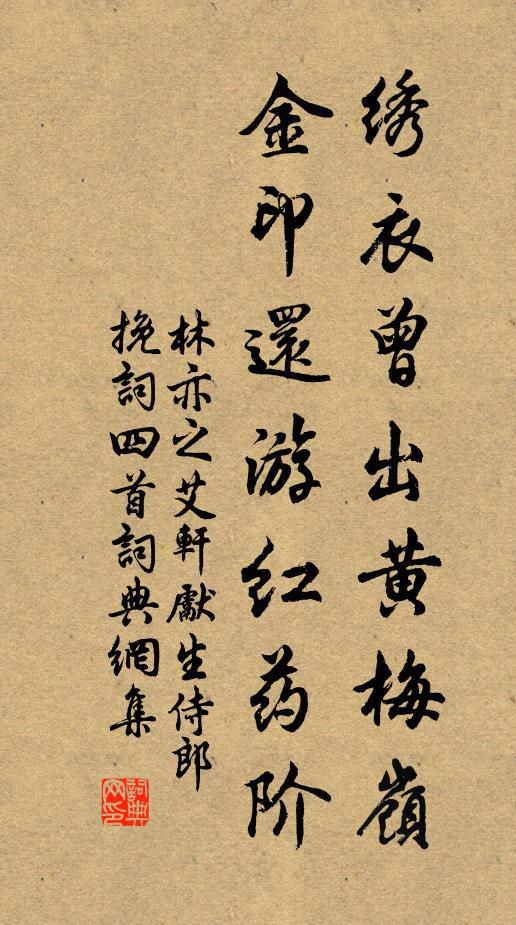 绣衣曾出黄梅嶺
金印還游红药阶
林亦之艾軒獻生侍郎
挽詞四首詞典網集
詞典网印